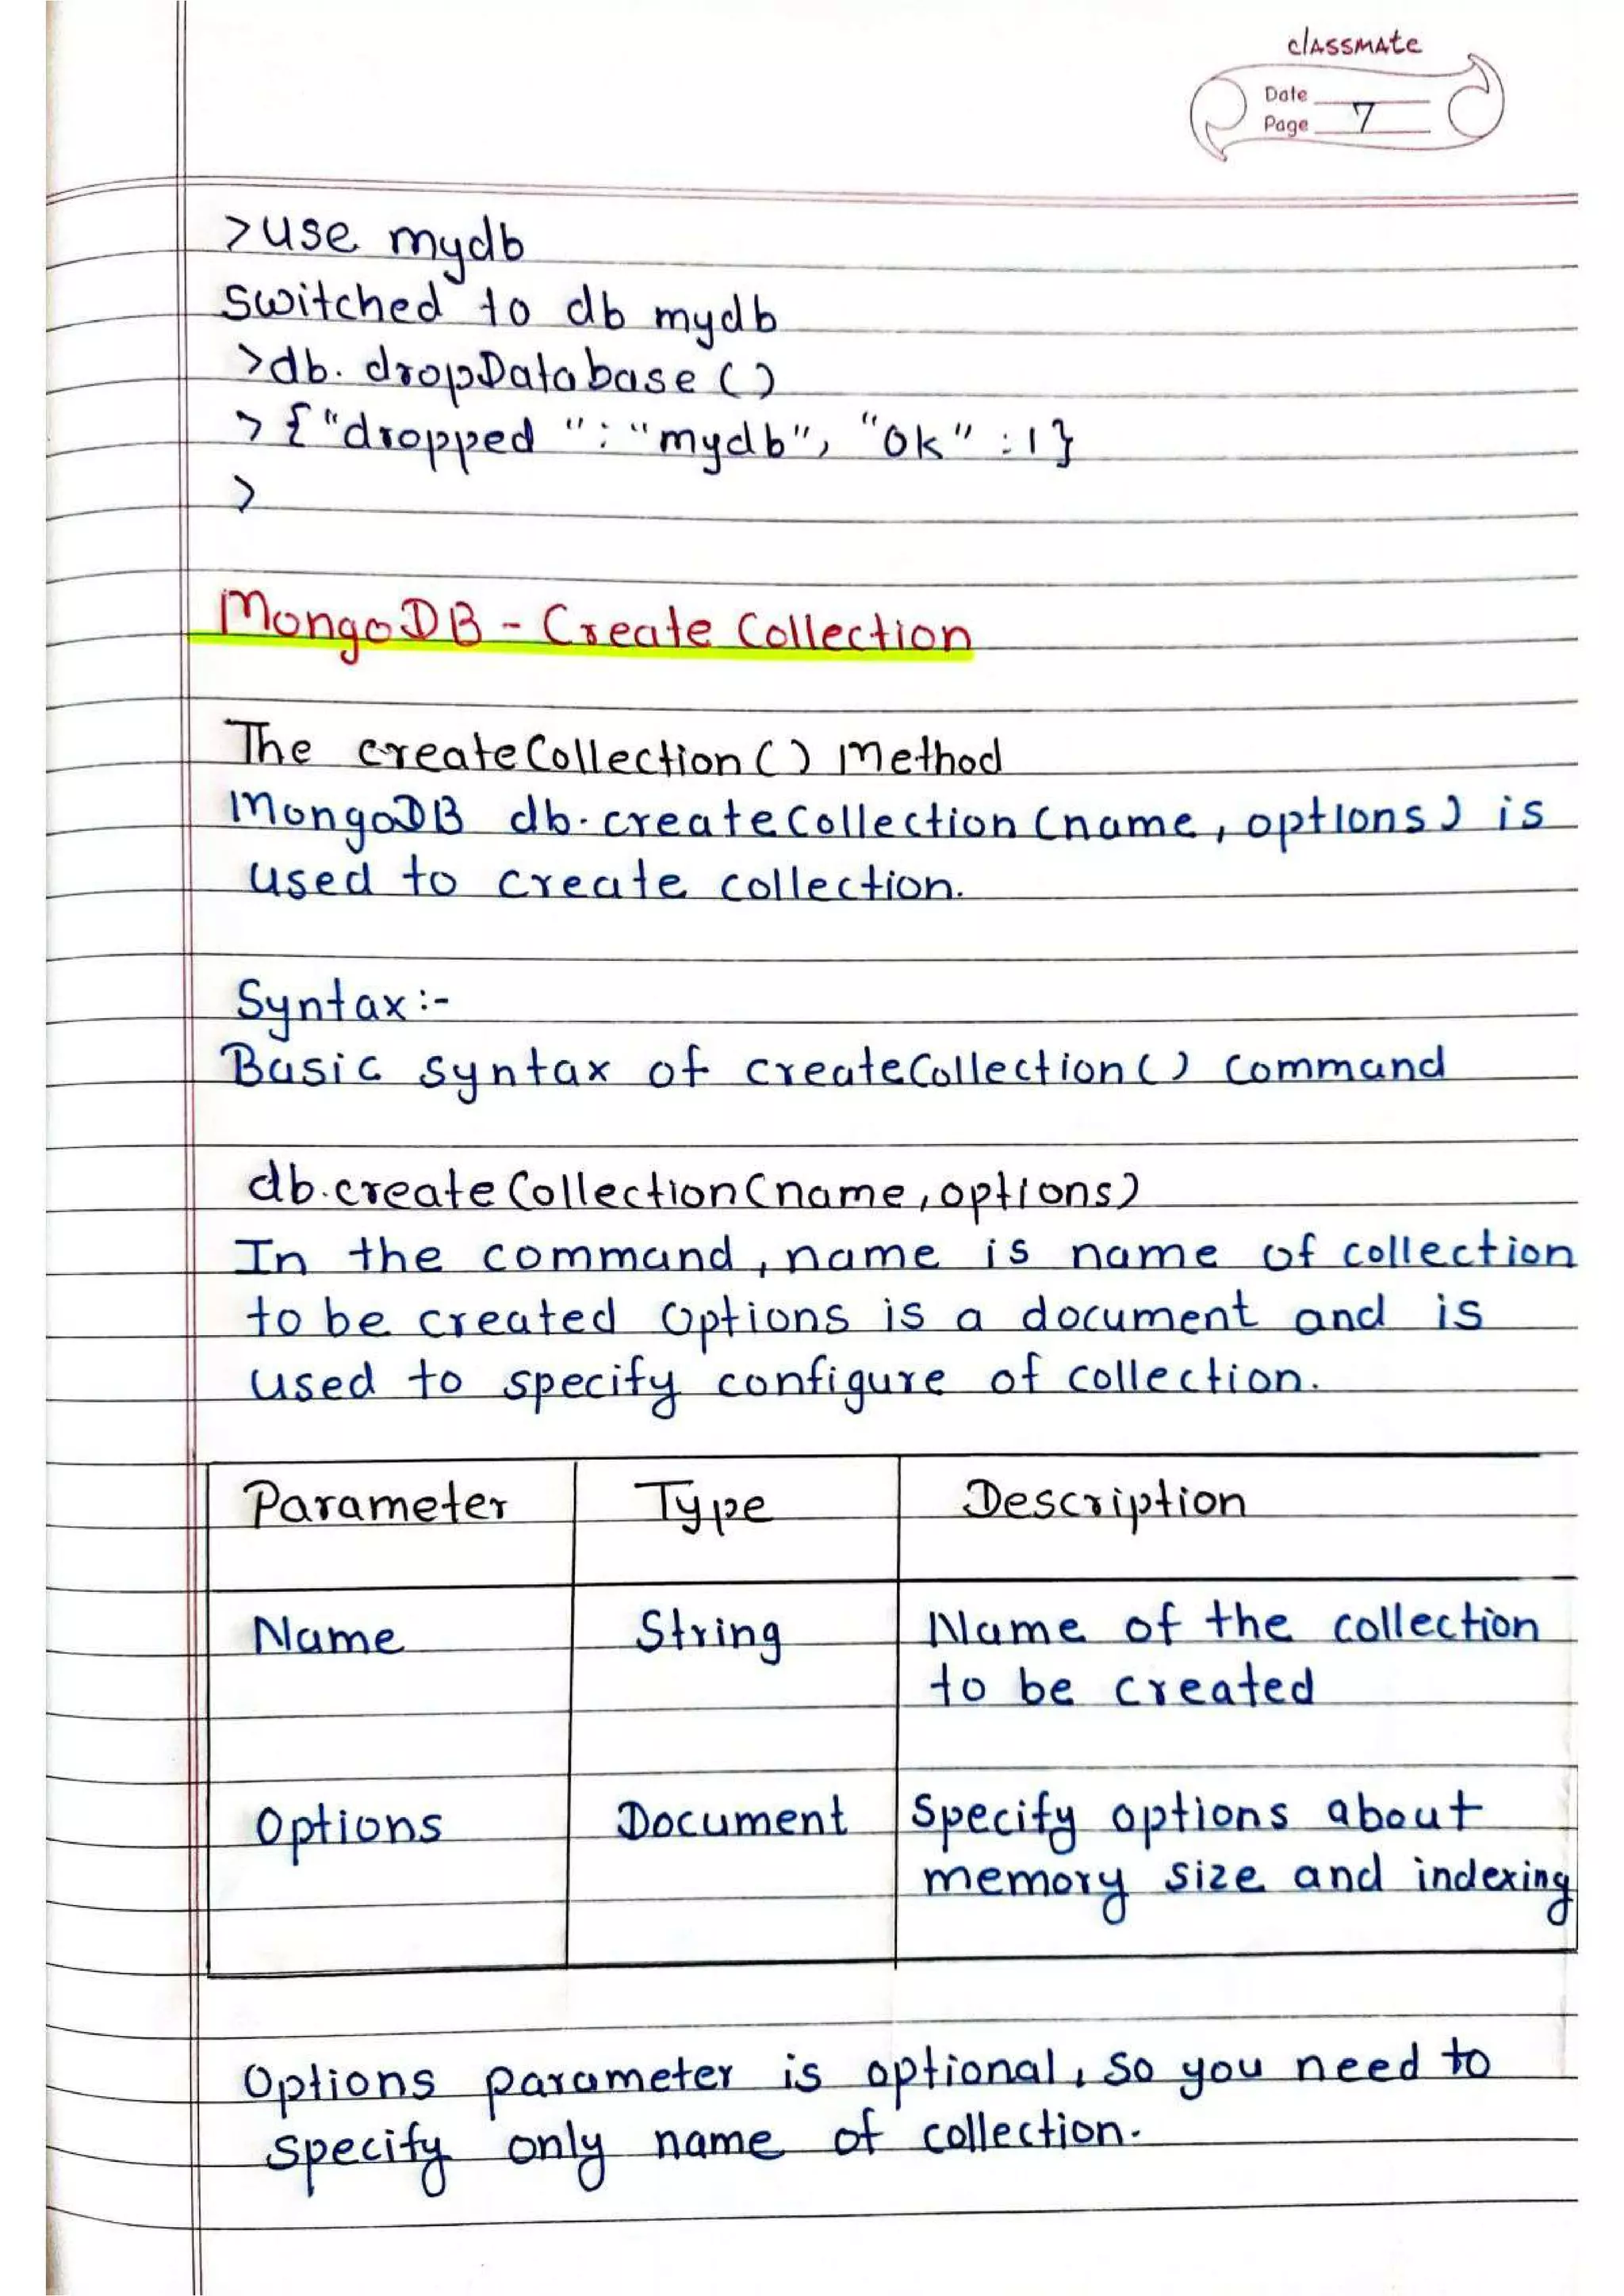 classmate
Date
Page 7
>use mydb
switched to db mydb
>db.dropDatabase()
>{"dropped ":"mydb", "ok" :1}
>
MongoDB - Create Collection
The createCollection() Method
MongoDB db.createCollection (name, options) is
used to create collection.
Syntax:-
Basic syntax of createCollection() command
db.createCollection(name, options)
In the command, name is name of collection
to be created Options is a document and is
used to specify configure of collection.
Parameter Type Description
Name String Name of the collection
to be created
Options Document Specify options about
memory size and indexing
Options parameter is optional, so you need to
specify only name of collection.